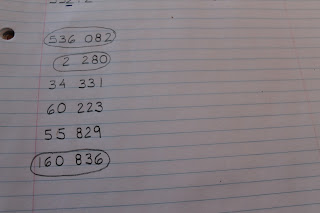 536 082
2 280
34 331
60 223
55 829
160 836